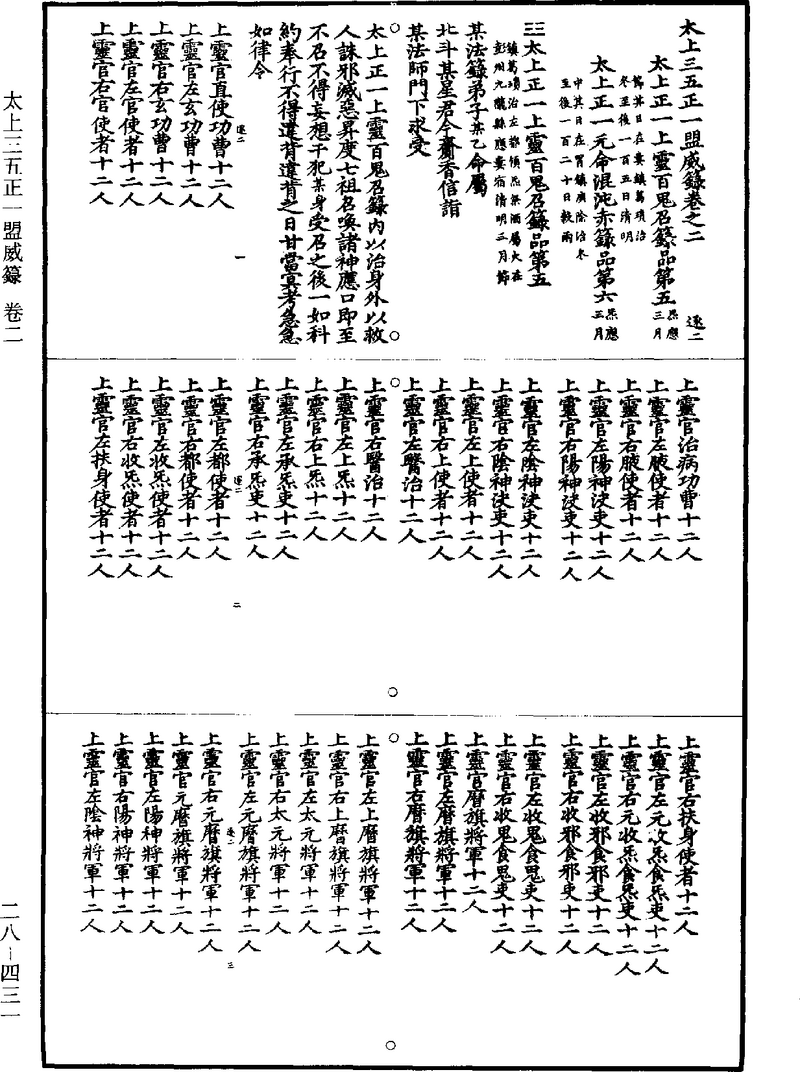 太上三五正一盟威籙卷之二 逐二
太上正一上靈百鬼召籙品第五 炁應三月
節其日在婁鎮葛璝治
冬至後一百五日清明
太上正一元命混沌赤籙品第六 炁應三月
中其日在胃鎮庚除治冬
至後一百二十日穀雨
三太上正一上靈百鬼召籙品第五
鎮葛璝治左都領炁祭酒屬火在
彭州九隴縣應婁宿清明三月節
某法籙弟子某乙命屬
北斗某星君今齎香信詣
某法師門下求受
太上正一上靈百鬼召籙內以治身外以救
人誅邪滅惡昇度七祖召喚諸神應口即至
不召不得妄想干犯某身受召之後一如科
約奉行不得違背違背之日甘當冥考急急
如律令
上靈官直使功曹十二人
上靈官左玄功曹十二人
上靈官右玄功曹十二人
上靈官左官使者十二人
上靈官右官使者十二人
上靈官治病功曹十二人
上靈官左腋使者十二人
上靈官右腋使者十二人
上靈官左陽神決吏十二人
上靈官右陽神決吏十二人
上靈官左陰神決吏十二人
上靈官右陰神決吏十二人
上靈官左上使者十二人
上靈官右上使者十二人
上靈官左醫治十二人
上靈官右醫治十二人
上靈官左上炁十二人
上靈官右上炁十二人
上靈官左承炁吏十二人
上靈官右承炁吏十二人
上靈官左都使者十二人
上靈官右都使者十二人
上靈官左收炁使者十二人
上靈官右收炁使者十二人
上靈官左扶身使者十二人
上靈官右扶身使者十二人
上靈官左元收炁食炁吏十二人
上靈官右元收炁食炁吏十二人
上靈官左收邪食邪吏十二人
上靈官右收邪食邪吏十二人
上靈官左收鬼食鬼吏十二人
上靈官右收鬼食鬼吏十二人
上靈官曆旗將軍十二人
上靈官左曆旗將軍十二人
上靈官右曆旗將軍十二人
上靈官左上曆旗將軍十二人
上靈官右上曆旗將軍十二人
上靈官左太元將軍十二人
上靈官右太元將軍十二人
上靈官左元曆旗將軍十二人
上靈官右元曆旗將軍十二人
上靈官元曆旗將軍十二人
上靈官左陽神將軍十二人
上靈官右陽神將軍十二人
上靈官左陰神將軍十二人
逐二 一
逐二 二
逐二 三
太上三五正一盟威籙 卷二
二八–四三一